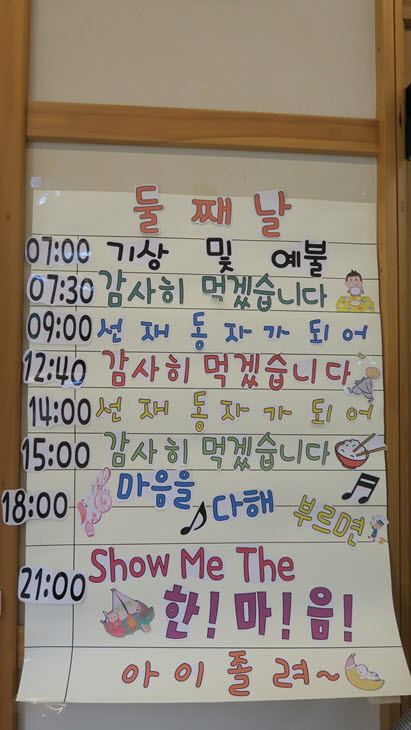 둘째날
07:00 기상 및 예불
07:30 감사히 먹겠습니다
09:00 선재동자가 되어
12:40 감사히 먹겠습니다
14:00 선재동자가 되어
15:00 감사히 먹겠습니다
18:00 마음을 다해 부르면
21:00 Show Me The
한! 마! 음!
아이졸려~